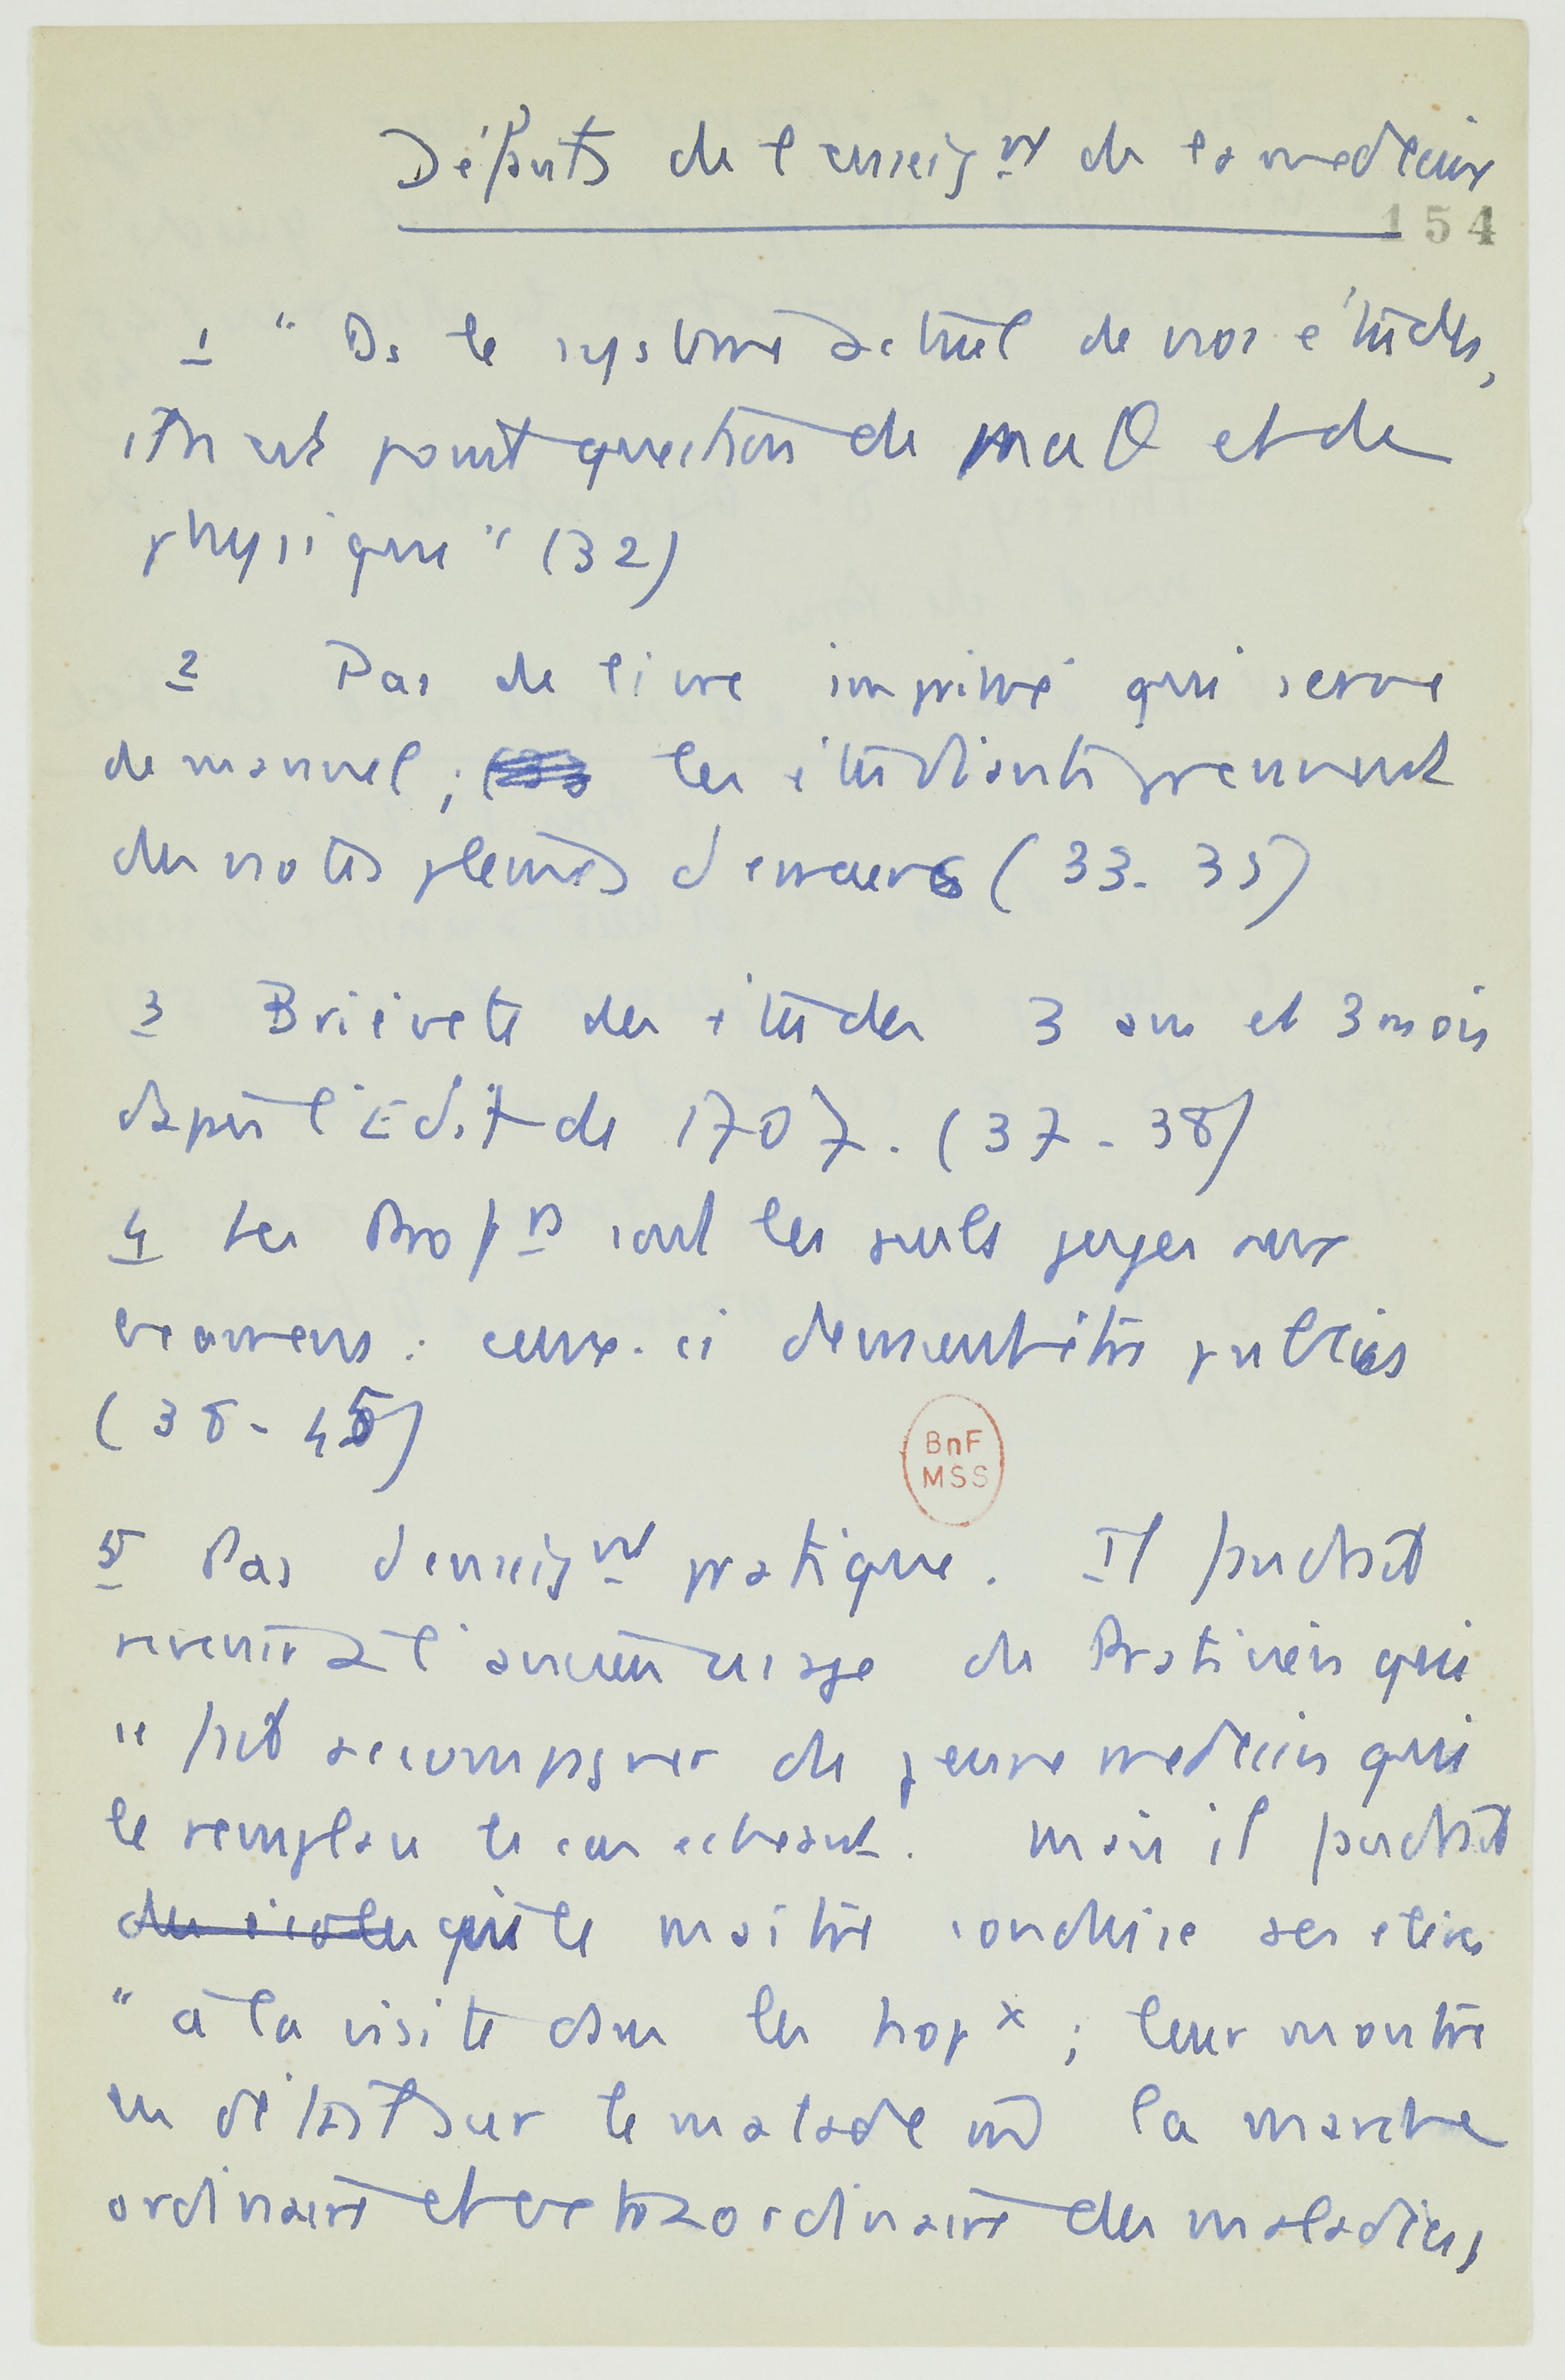 Défauts de l'enseig nt de la medecine
154
1 " Ds le systeme actuel de nos études,
il n'est point question de maθ et de
physique " (32)
2 Pas de livre imprimé qui serve
de manuel ; les étudiants prennent
des notes pleines d'erreurs (33-35)
3 Brièveté des études 3 ans et 3 mois
depuis l'Edit de 1707. (37-38)
4 Les Prof rs sont les seuls juges aux
examens : ceux-ci devraient être publics
(38-45)
5 Pas d'enseig nt pratique. Il faudrait
revenir à l'ancien usage du Praticien qui
se fait accompagner de jeune medecin qui
le remplace le cas echeant. Mais il faudrait
des écoles que le maître conduise ses elèves
" à la visite dans les hop x ; leur montre
en détail sur le malade la marche
ordinaire et extraordinaire des maladies,
BnF
MSS